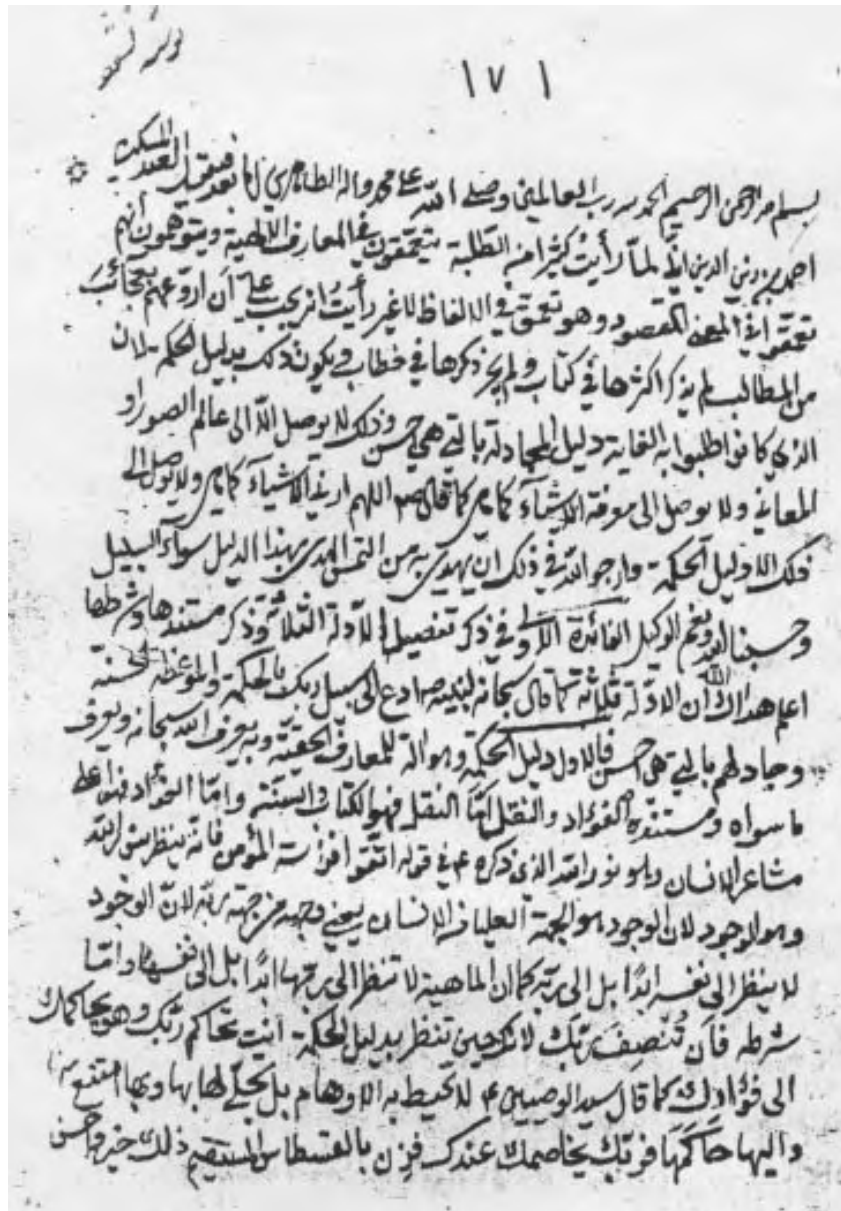 ١٧١
بسم الله الرحمن الرحيم الحمد لله رب العالمين وصلى الله على محمد وآله الطاهرين اما بعد فيقول العبد المسكين
احمد بن زين الدين انى لما رأيت كثيرا من الطلبة يتعمقون في المعارف الالهية ويتوهمون انهم
تعمقوا في المعنى المقصود وهو تعمق في الالفاظ لا غير رأيت انه يجب على ان اروعهم بعجائب
من المطالب لم يذكر اكثرها في كتاب ولم يجر ذكرها في خطاب ويكون ذلك بدليل الحكمة لان
الذي كانوا طلبوا به الغاية دليل المجادلة بالتي هي احسن وذلك لا يوصل الا الى عالم الصور او
المعاني ولا يوصل الى معرفة الاشياء كما هي كما قال ص اللهم ارني الاشياء كما هي ولا يوصل الى
ذلك الا دليل الحكمة وارجو الله في ذلك ان يهدي به من التمس الهدى بهذا الدليل سواء السبيل
وحسبنا الله ونعم الوكيل الفائدة الاولى في ذكر تفصيل الادلة الثلاثة وذكر مستندها وشرطها
اعلم هداك الله ان الادلة ثلثة كما قال سبحانه لنبيه ص ادع الى سبيل ربك بالحكمة والموعظة الحسنة
وجادلهم بالتي هي احسن فالاول دليل الحكمة وهو الة للمعارف الحقية وبه يعرف الله سبحانه ويعرف
ما سواه ومستنده الفؤاد والنقل اما النقل فهو الكتاب والسنة واما الفؤاد فهو اعلى
مشاعر الانسان وهو نور الله الذي ذكره ع في قوله اتقوا فراسة المؤمن فانه ينظر بنور الله
وهو الوجود لان الوجود هو الجهة العليا من الانسان يعني وجهه من جهة ربه لان الوجود
لا ينظر الى نفسه ابدا بل الى ربه كما ان الماهية لا تنظر الى ربها ابدا بل الى نفسها واما
شرطه فان تنصف ربك لانك حين تنظر بدليل الحكمة انت تحاكم ربك وهو يحاكمك
الى فؤادك كما قال سيد الوصيين ع لا تحيط به الاوهام بل تجلى لها بها وبها امتنع منها
واليها حاكمها فربك يخاصمك عندك فزن بالقسطاس المستقيم ذلك خير واحسن